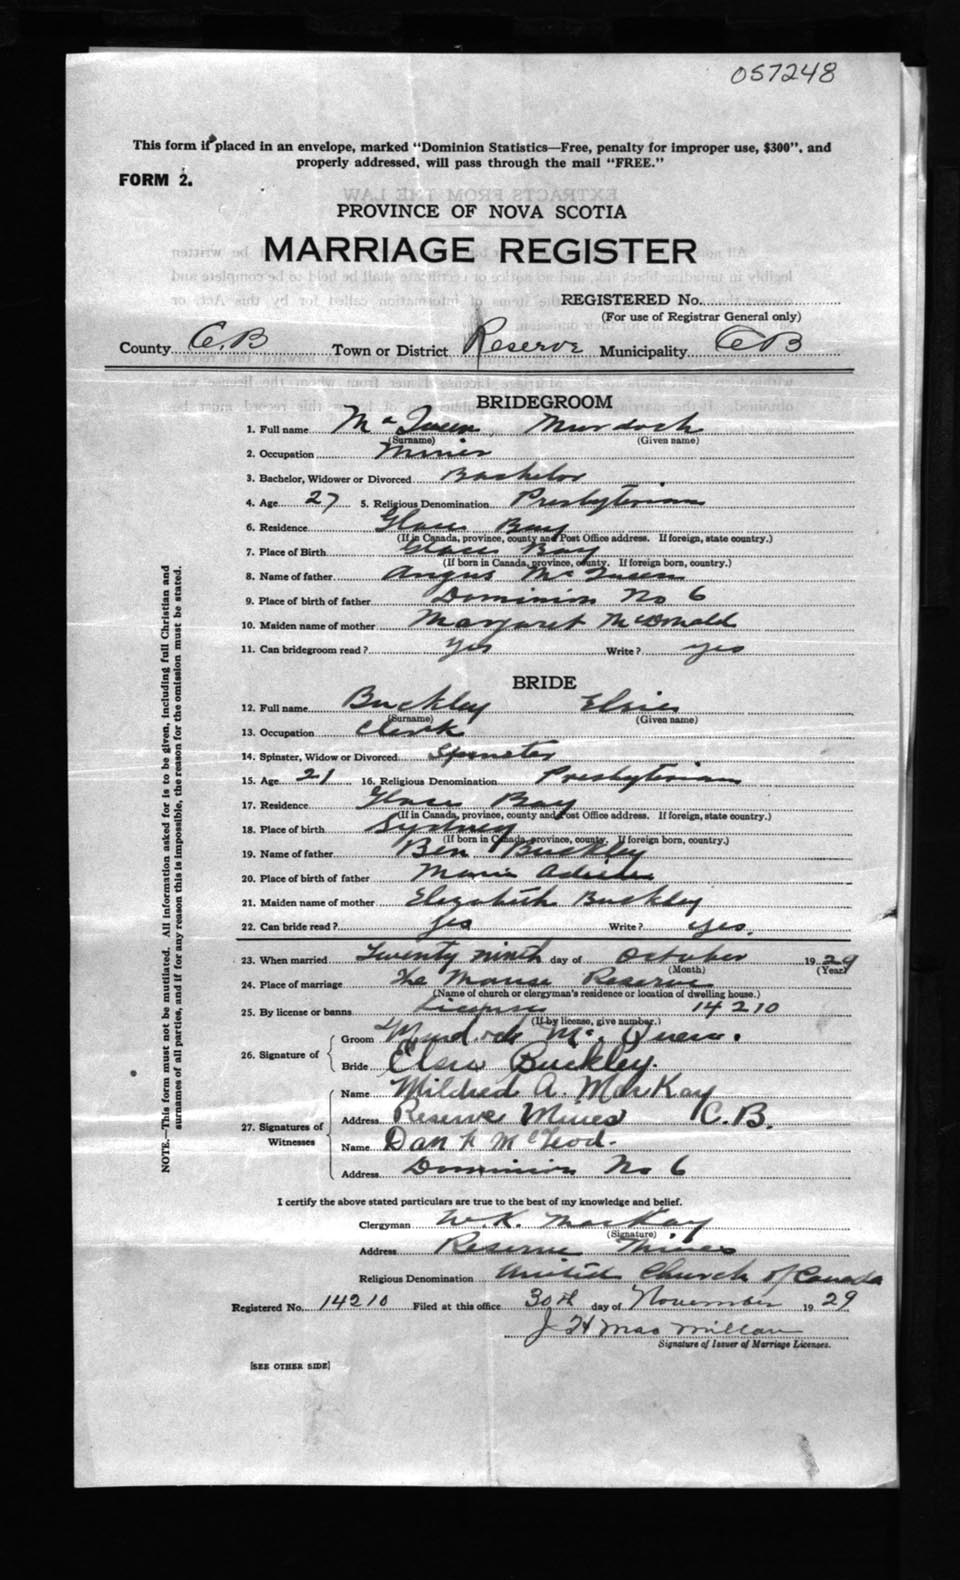 057248
This form if placed in an envelope, marked "Dominion Statistics—Free, penalty for improper use, $300", and
properly addressed, will pass through the mail "FREE."
FORM 2.
PROVINCE OF NOVA SCOTIA
MARRIAGE REGISTER
REGISTERED No.
(For use of Registrar General only)
County C.B Town or District Reserve Municipality C B
BRIDEGROOM
1. Full name Mc Queen, Murdoch
(Surname) (Given name)
2. Occupation Miner
3. Bachelor, Widower or Divorced Bachelor
4. Age 27 5. Religious Denomination Presbyterian
6. Residence Glace Bay
(If in Canada, province, county and Post Office address. If foreign, state country.)
7. Place of Birth Glace Bay
(If born in Canada, province, county. If foreign born, country.)
8. Name of father Angus McQueen
9. Place of birth of father Dominion No 6
10. Maiden name of mother Margaret McDonald
11. Can bridegroom read? yes Write? yes
BRIDE
12. Full name Buckley Elsie
(Surname) (Given name)
13. Occupation Clerk
14. Spinster, Widow or Divorced Spinster
15. Age 21 16. Religious Denomination Presbyterian
17. Residence Glace Bay
(If in Canada, province, county and Post Office address. If foreign, state country.)
18. Place of birth Sydney
(If born in Canada, province, county. If foreign born, country.)
19. Name of father Ben Buckley
20. Place of birth of father
21. Maiden name of mother Elizabeth Buckley
22. Can bride read? yes Write? yes.
23. When married Twenty ninth day of October 1929
(Month) (Year)
24. Place of marriage The Manse Reserve
(Name of church or clergyman's residence or location of dwelling house.)
25. By license or banns License 14210
(If by license, give number.)
26. Signature of
Groom Murdoch Mc Queen.
Bride Elsie Buckley.
27. Signatures of Witnesses
Name Mildred A. MacKay
Address Reserve Mines C.B.
Name Dan McLeod.
Address Dominion No 6
I certify the above stated particulars are true to the best of my knowledge and belief.
Clergyman W.K. MacKay
(Signature)
Address Reserve Mines
Religious Denomination United Church of Canada
Registered No. 14210 Filed at this office 30th day of November 1929
J H MacMillan
Signature of Issuer of Marriage Licenses.
[SEE OTHER SIDE]
NOTE.—This form must not be mutilated. All information asked for is to be given, including full Christian and
surnames of all parties, and if for any reason this is impossible, the reason for the omission must be stated.